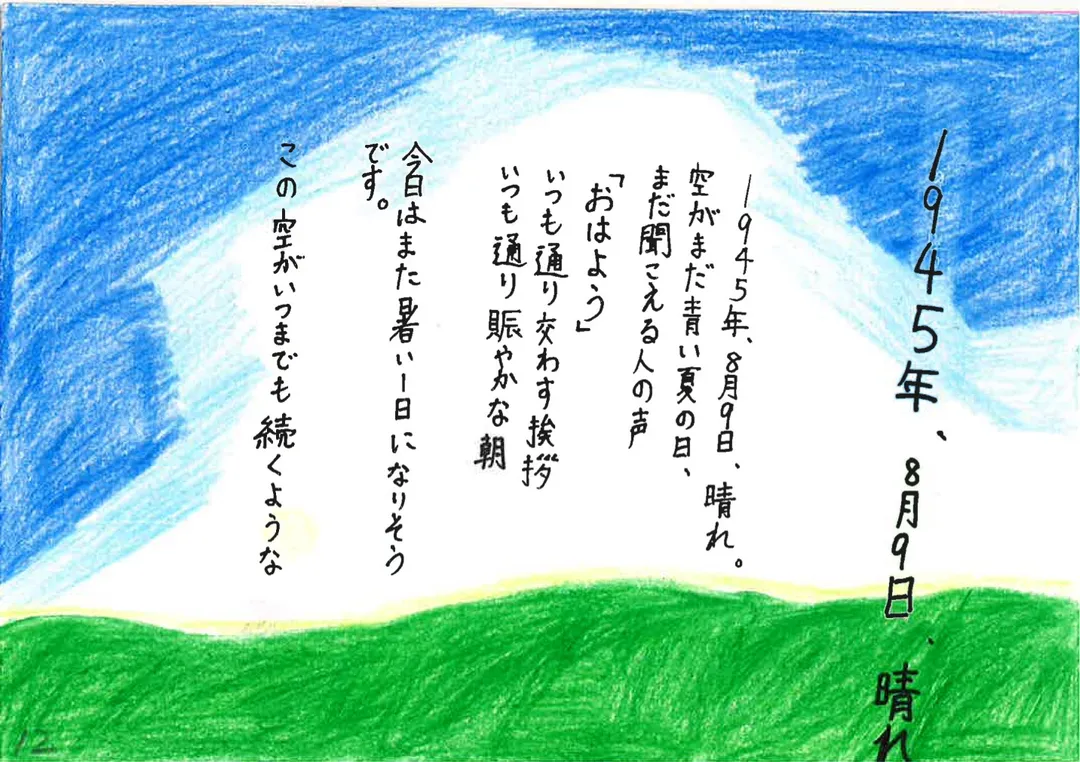 1945年、8月9日、晴れ
1945年、8月9日、晴れ。
空がまだ青い夏の日、
まだ聞こえる人の声
「おはよう」
いつも通り交わす挨拶
いつも通り賑やかな朝
今日はまた暑い一日になりそう
です。
この空がいつまでも続くような
12